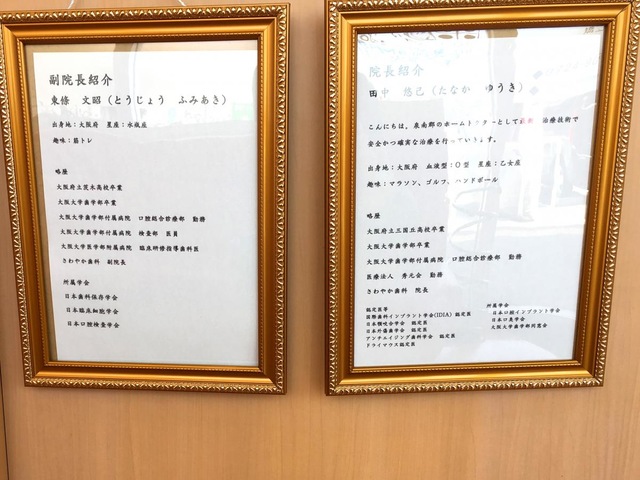 副院長紹介
東條　文昭（とうじょう　ふみあき）
出身地：大阪府　星座：水瓶座
趣味：筋トレ
略歴
大阪府立茨木高校卒業
大阪大学歯学部卒業
大阪大学歯学部付属病院　口腔総合診療部　勤務
大阪大学歯学部付属病院　検査部　医員
大阪大学医学部附属病院　臨床研修指導歯科医
さわやか歯科　副院長
所属学会
日本歯科保存学会
日本臨床細胞学会
日本口腔検査学会
院長紹介
田中　悠己（たなか　ゆうき）
こんにちは、泉南郡のホームドクターとして最新　治療技術で
安全かつ確実な治療を行っています。
出身地：大阪府　血液型：O型　星座：乙女座
趣味：マラソン、ゴルフ、ハンドボール
略歴
大阪府立三国丘高校卒業
大阪大学歯学部卒業
大阪大学歯学部付属病院　口腔総合診療部　勤務
医療法人　秀光会　勤務
さわやか歯科　院長
認定医等
国際歯科インプラント学会(IDIA) 認定医
日本顎咬合学会　認定医
日本外傷歯学会　認定医
アンチエイジング歯科学会　認定医
ドライマウス認定医
所属学会
日本口腔インプラント学会
日本口臭学会
大阪大学歯学部同窓会